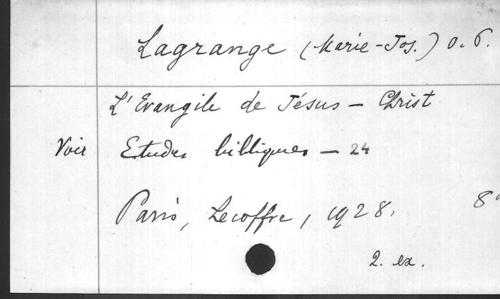 Lagrange (Marie-Jos.) O.P.
L'Evangile de Jésus-Christ
Voir Etudes bibliques - 24
Paris, Lecoffre, 1928. 8°
2. ex.